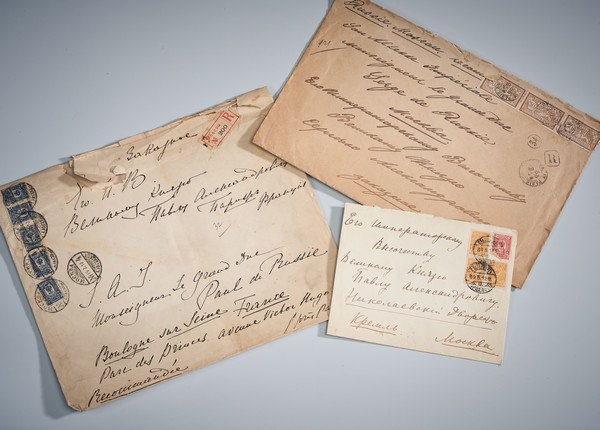 Заказное
R
№ 200
Его И. В.
Великому Князю
Павлу Александровичу
Парижъ
Франція
S. A. I.
Monseigneur Le Grand Duc
Paul de Russie
Boulogne sur Seine France
Parc des Princes avenue Victor Hugo
Recommandée
Russie Moscou
Son Altesse Impériale
Monseigneur le Grand Duc
Serge de Russie
Москва
Его Императорскому Высочеству
Великому Князю
Сергію Александровичу
Его Императорскому
Высочеству
Великому Князю
Павлу Александровичу
Николаевскій Дворецъ
Кремль
Москва